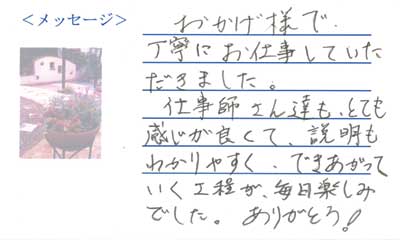 ＜メッセージ＞
おかげ様で.
丁寧にお仕事していた
だきました。
仕事師さん達も、とても
感じが良くて、説明も
わかりやすく、できあがって
いく工程が、毎日楽しみ
でした。ありがとう！